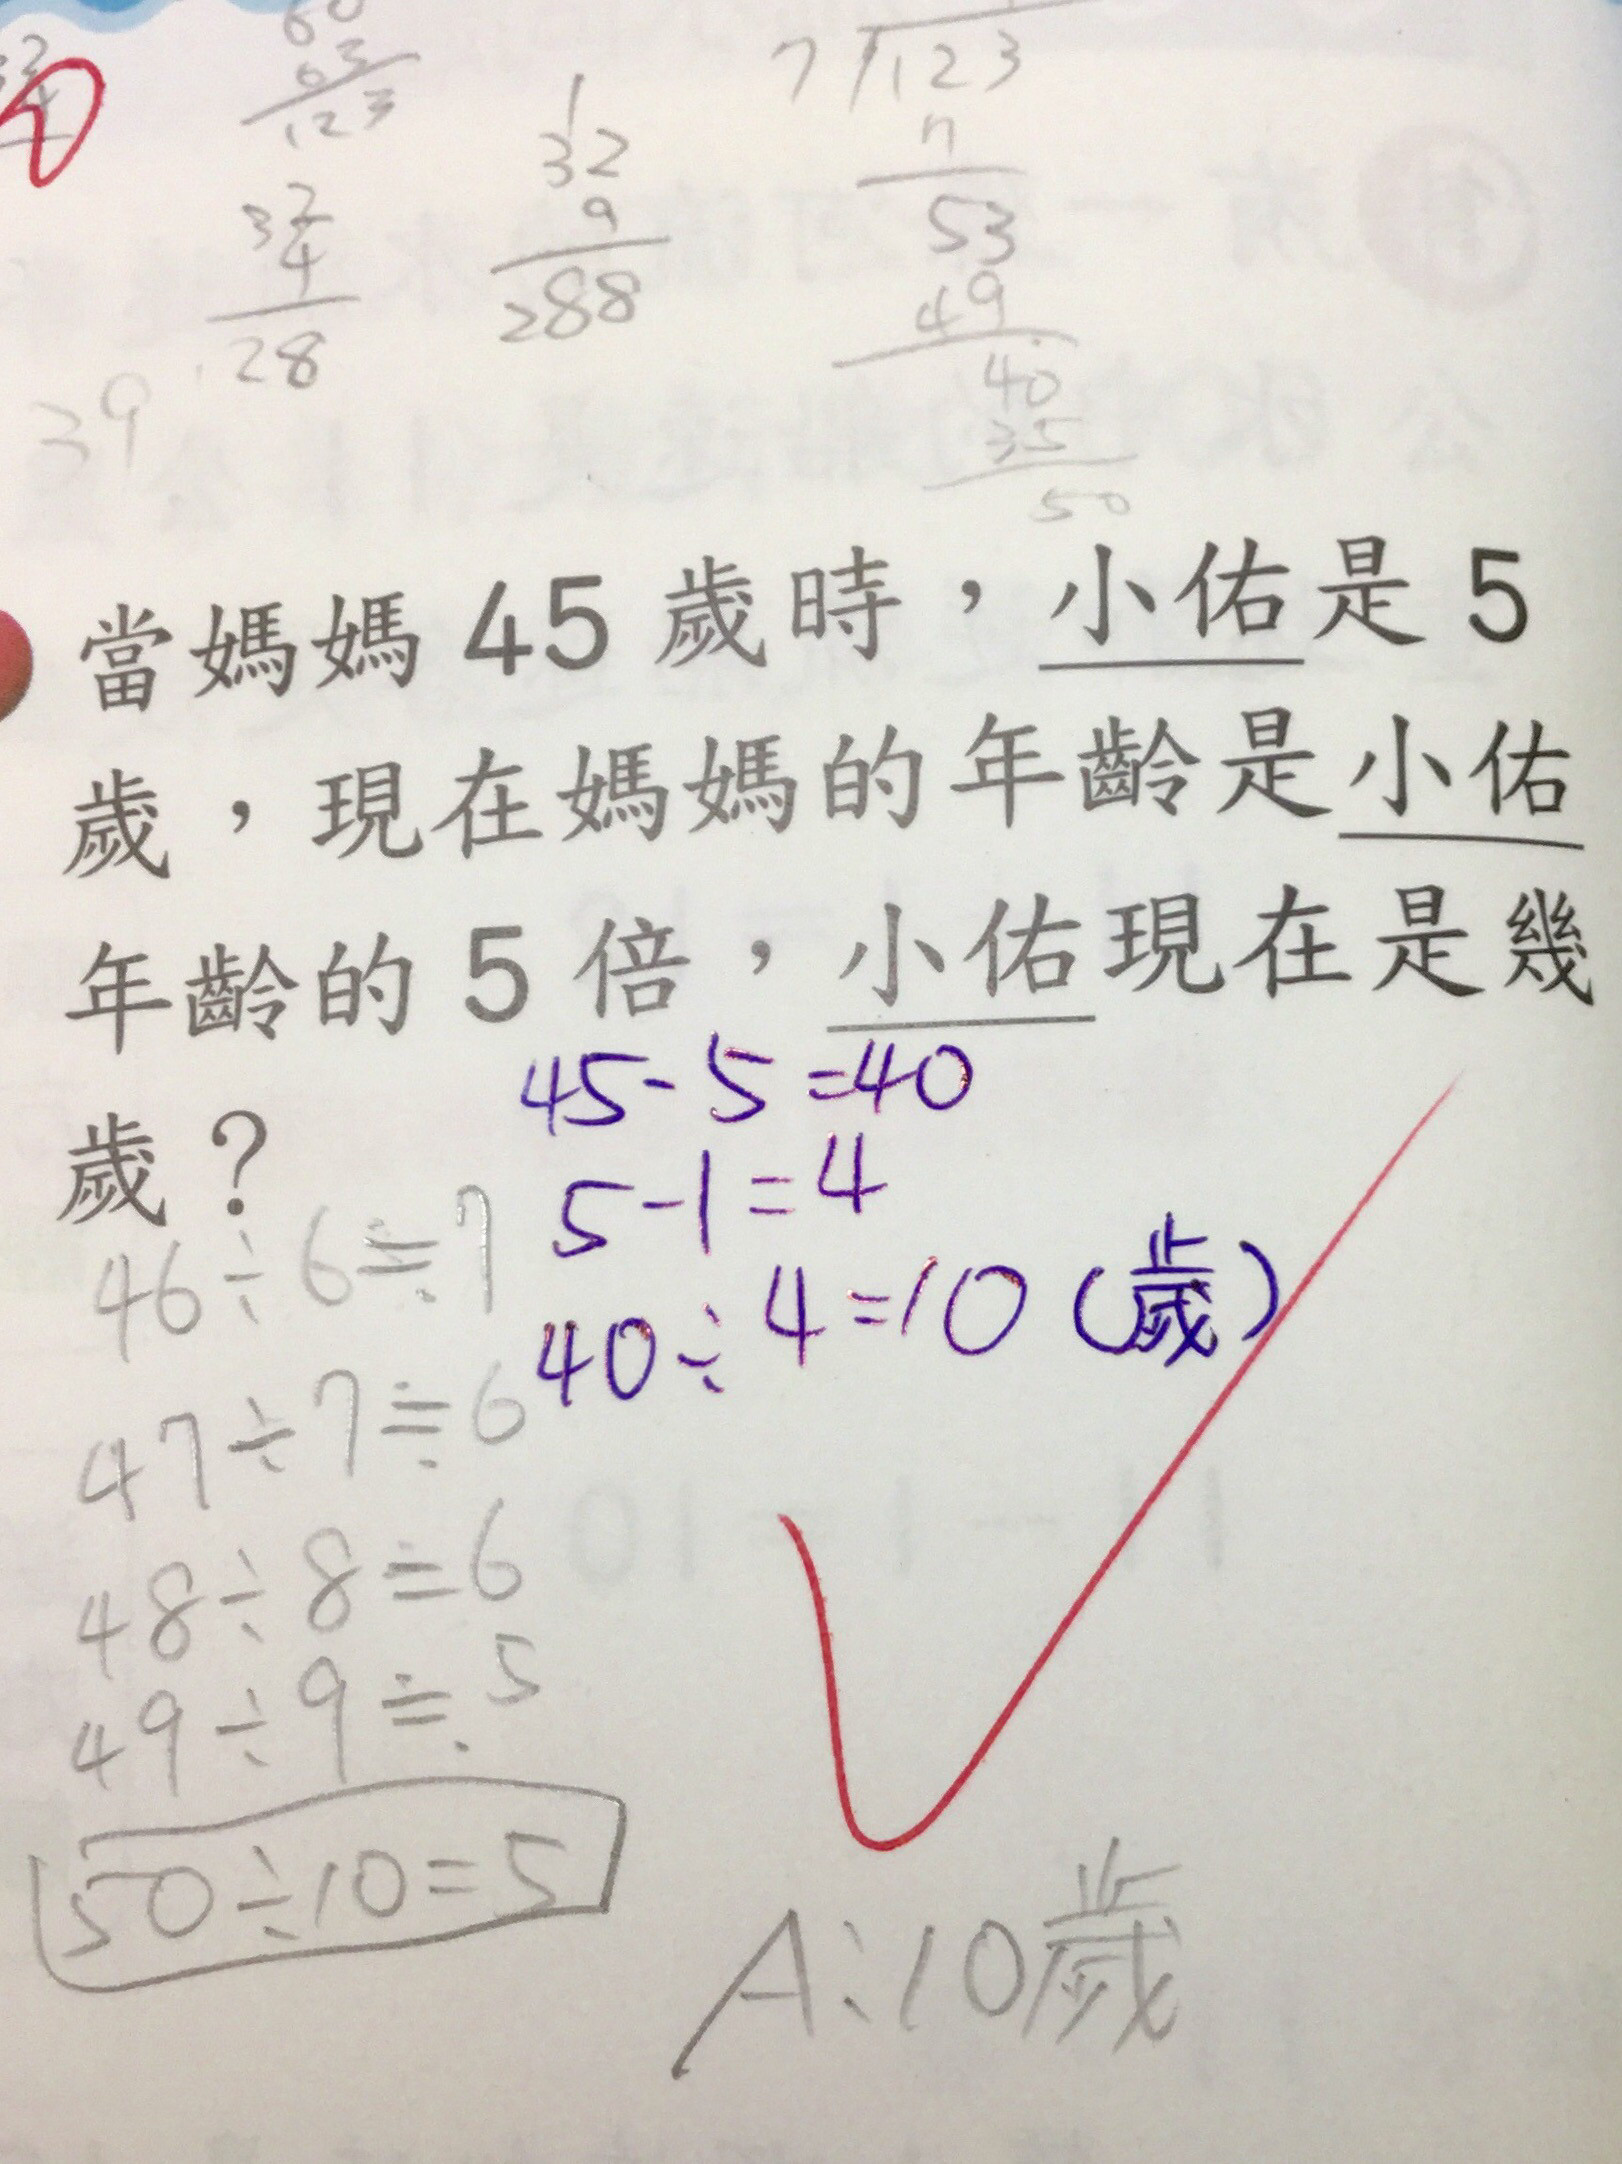 60
63
123
32
4
28
1
32
9
288
7 123
7
53
49
40
35
50
39
當媽媽 45 歲時，小佑是 5
歲，現在媽媽的年齡是小佑
年齡的 5 倍，小佑現在是幾
歲？
45-5=40
5-1=4
40÷4=10(歲)
46÷6≒7
47÷7≒6
48÷8=6
49÷9≒5
50÷10=5
A:10歲